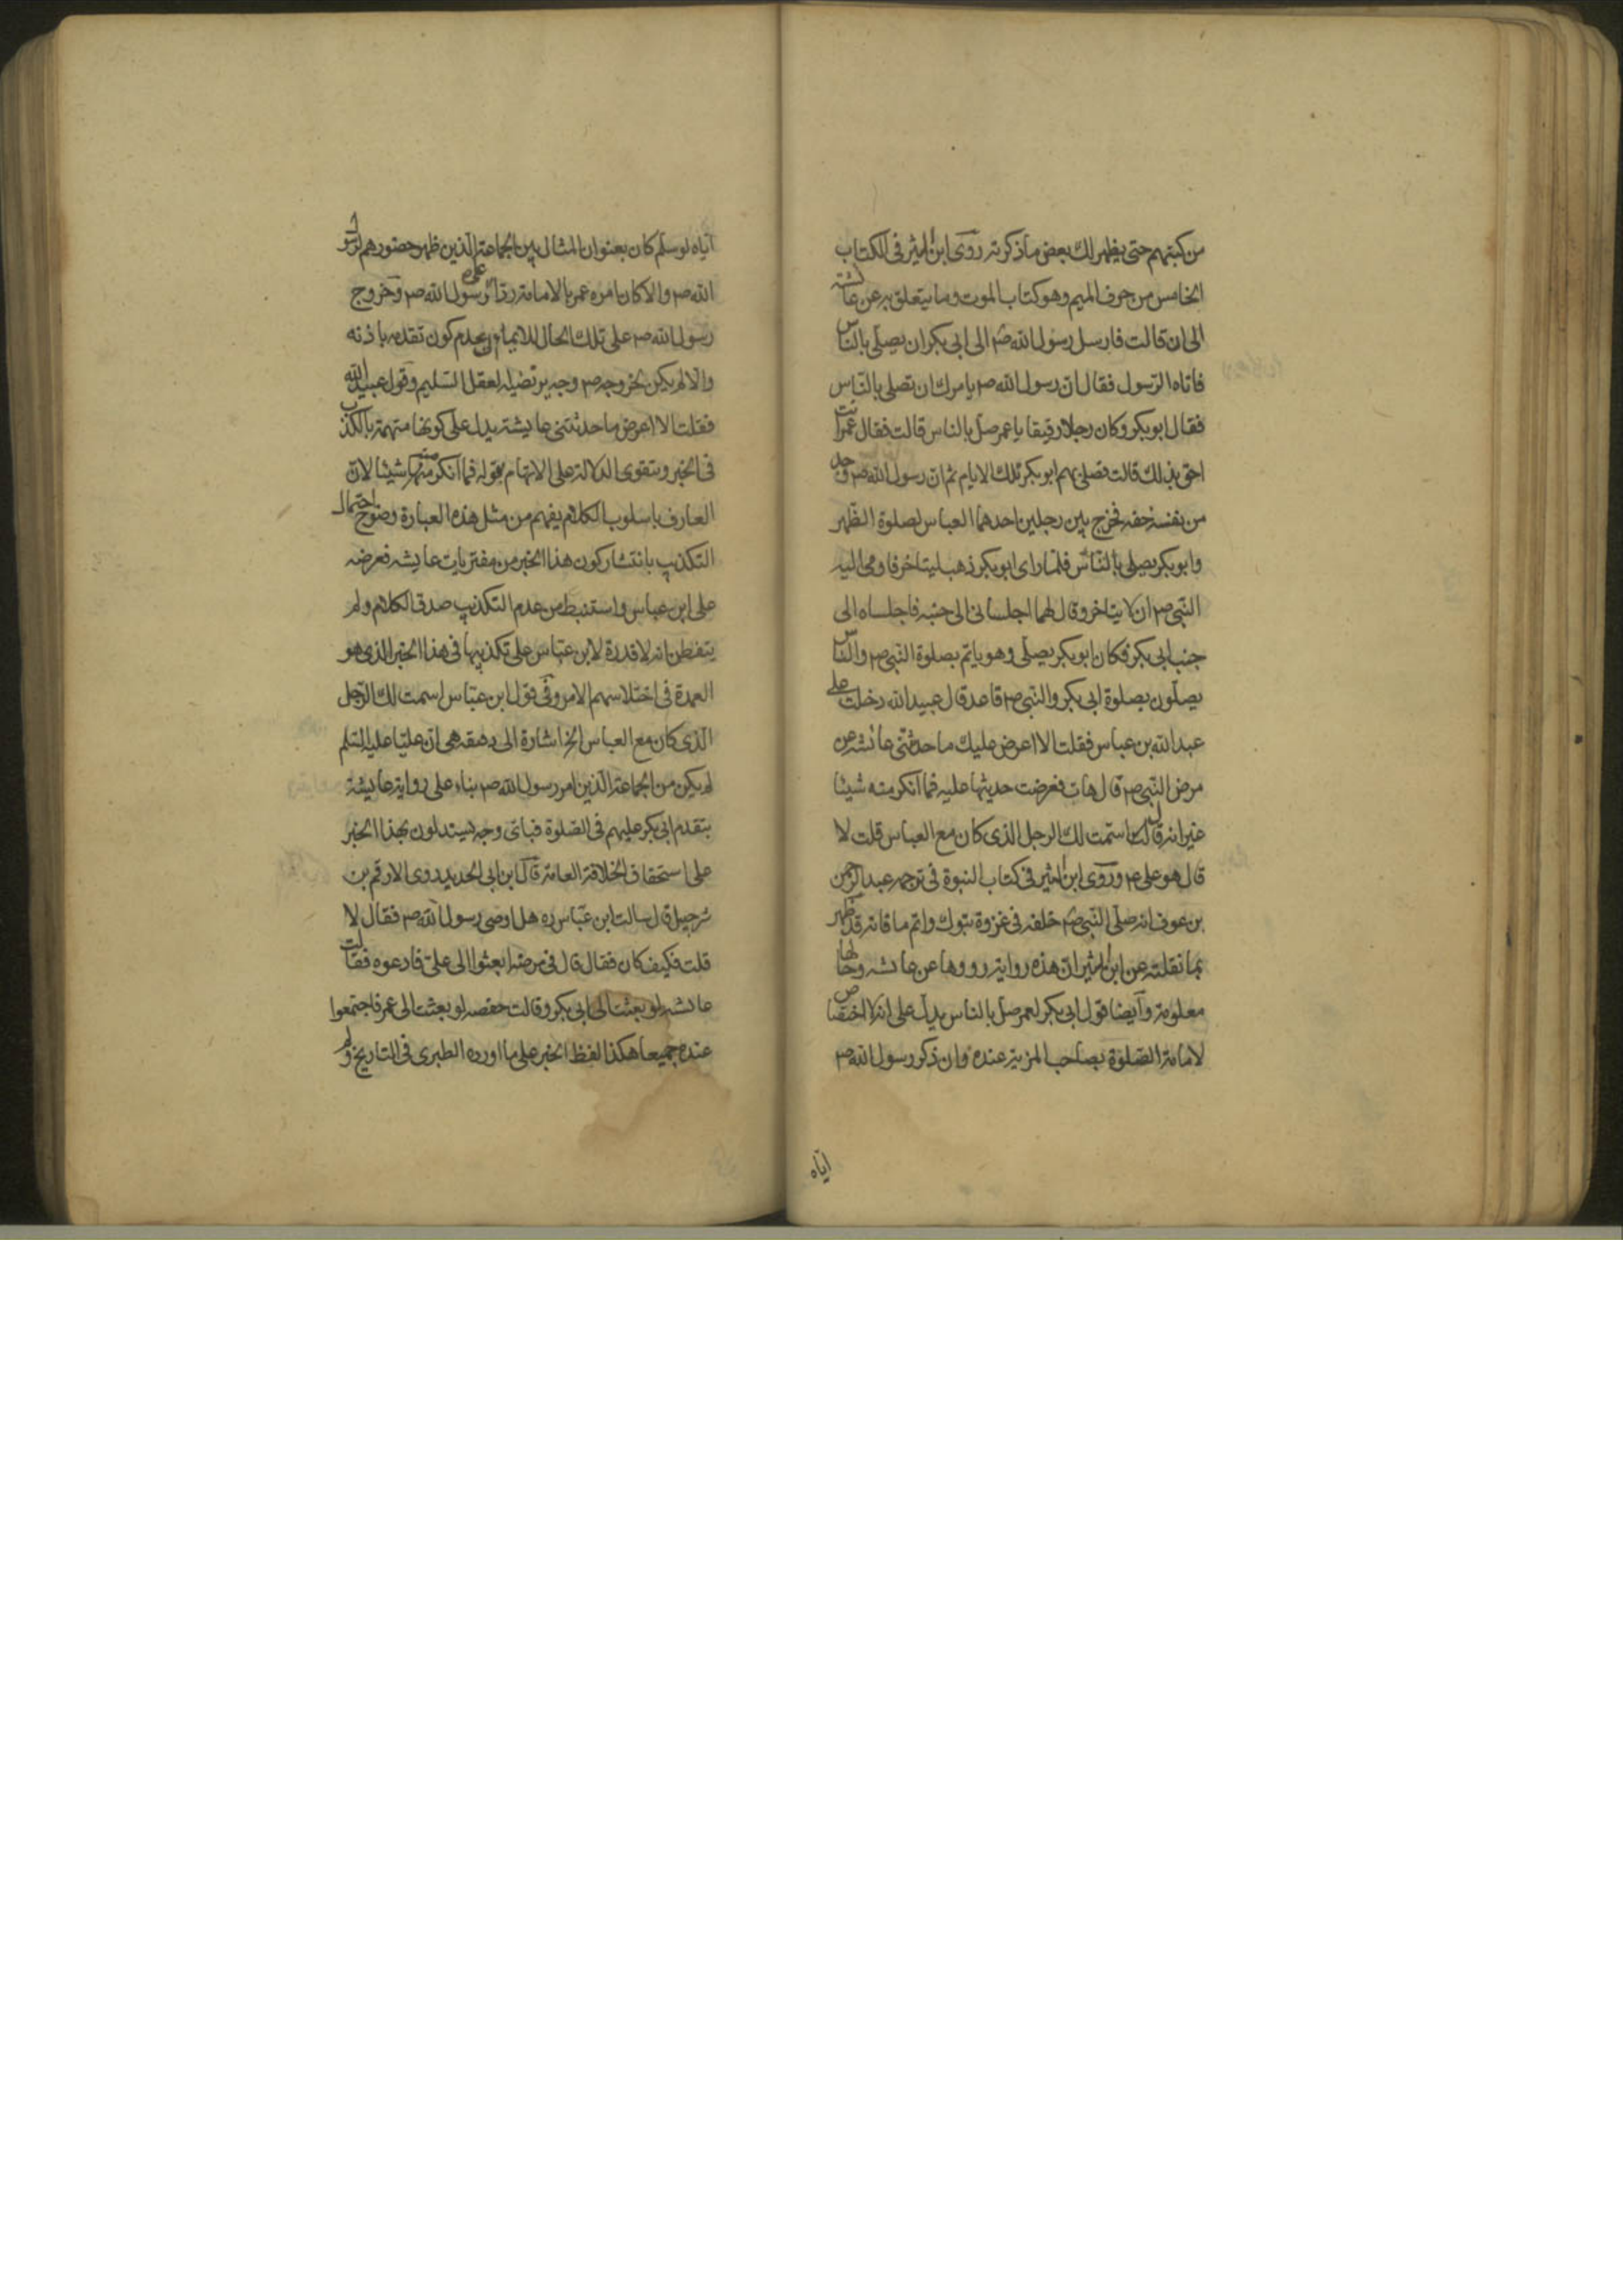 من كتبهم حتى يظهر لك بعض ما ذكرته روى ابن الاثير فى الكتاب
الخامس من حرف الميم وهو كتاب الموت وما يتعلق به عن عائشة
الى ان قالت فارسل رسول الله ص الى ابى بكر ان يصلى بالناس
فاتاه الرسول فقال ان رسول الله ص يامرك ان تصلى بالناس
فقال ابو بكر وكان رجلا رقيقا يا عمر صل بالناس قالت فقال عمر انت
احق بذلك قالت فصلى بهم ابو بكر تلك الايام ثم ان رسول الله ص وجد
من نفسه خفة فخرج بين رجلين احدهما العباس لصلوة الظهر
وابو بكر يصلى بالناس فلما راى ابو بكر ذهب ليتاخر فاومى اليه
النبى ص ان لا يتاخر وقال لهما اجلسانى الى جنبه فاجلساه الى
جنب ابى بكر فكان ابو بكر يصلى وهو ياتم بصلوة النبى ص والناس
يصلون بصلوة ابى بكر والنبى ص قاعد قال عبيد الله دخلت على
عبد الله بن عباس فقلت الا اعرض عليك ما حدثتنى عائشه عن
مرض النبى ص قال هات فعرضت حديثها عليه فما انكر منه شيئا
غير انه قال اسمت لك الرجل الذى كان مع العباس قلت لا
قال هو على ع وروى ابن الاثير فى كتاب النبوة فى ترجمه عبد الرحمن
بن عوف انه صلى النبى ص خلفه فى غزوة تبوك واتم ما فاته قد ظهر
بما نقلته عن ابن الاثير ان هذه رواية رووها عن عايشه وحالها
معلومة وايضا قول ابى بكر لعمر صل بالناس يدل على انه لا اختصاص
لامامة الصلوة بصاحب المزية عنده وان ذكر رسول الله ص
اياه
اياه لو سلم كان بعنوان المثال بين الجماعة الذين ظهر حضورهم لرسول
الله ص والا كان امره عمر بالامامة ردا على رسول الله ص وخروج
رسول الله ص على تلك الحال للايماء بعدم كون تقدمه باذنه
والا لم يكن لخروجه ص وجه يرتضيه العقل السليم وقول عبيد الله
فقلت الا اعرض ما حدثتنى عايشة يدل على كونها متهمة بالكذب
فى الخبر ويتقوى الدلالة على الاتهام بقوله فما انكر منه شيئا لان
العارف باسلوب الكلام يفهم من مثل هذه العبارة وضوح احتمال
التكذيب بانتشار كون هذا الخبر من مفتريات عايشه فعرضه
على ابن عباس واستنبط من عدم التكذيب صدق الكلام ولم
يتفطن انه لا قدرة لابن عباس على تكذيبها فى هذا الخبر الذى هو
العمدة فى اختلاسهم الامر وفى قول ابن عباس اسمت لك الرجل
الذى كان مع العباس الخ اشارة الى دقيقة هى ان عليا عليه السلم
لم يكن من الجماعة الذين امر رسول الله ص بناء على رواية عايشة
بتقدم ابى بكر عليهم فى الصلوة فباى وجه يستدلون بهذا الخبر
على استحقاق الخلافة العامة قال ابن ابى الحديد روى الارقم بن
شرحبيل قال سالت ابن عباس ره هل اوصى رسول الله ص فقال لا
قلت فكيف كان فقال قال فى مرضه ابعثوا الى على فادعوه فقالت
عايشه لو بعثت الى ابى بكر وقالت حفصه لو بعثت الى عمر فاجتمعوا
عنده جميعا هكذا لفظ الخبر على ما اورده الطبرى فى التاريخ ولم